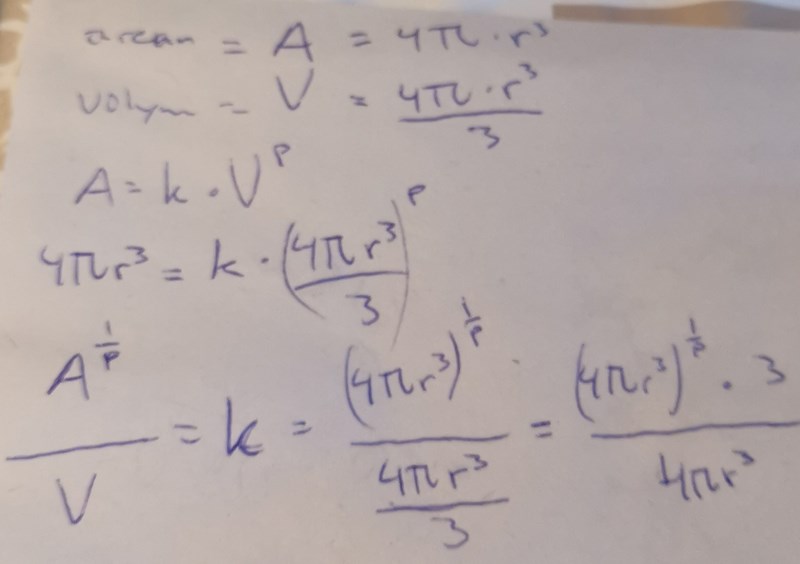 arean = A = 4π · r³
volym = V = 4π · r³ / 3
A = k · V^p
4πr³ = k · (4πr³ / 3)^p
A^(1/p) / V = k = (4πr³)^(1/p) / (4πr³ / 3) = (4πr³)^(1/p) · 3 / 4πr³